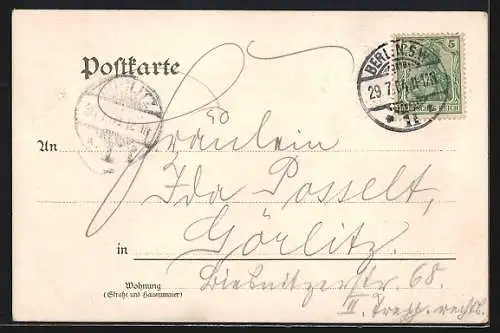 Postkarte
5
BERLIN S.W.
29.7.
* 11
REICH
An Fräulein
Ida Posselt,
in Görlitz.
Wohnung
(Straße und Hausnummer)
Biesnitzerstr 68.
II. Trepp. rechts.